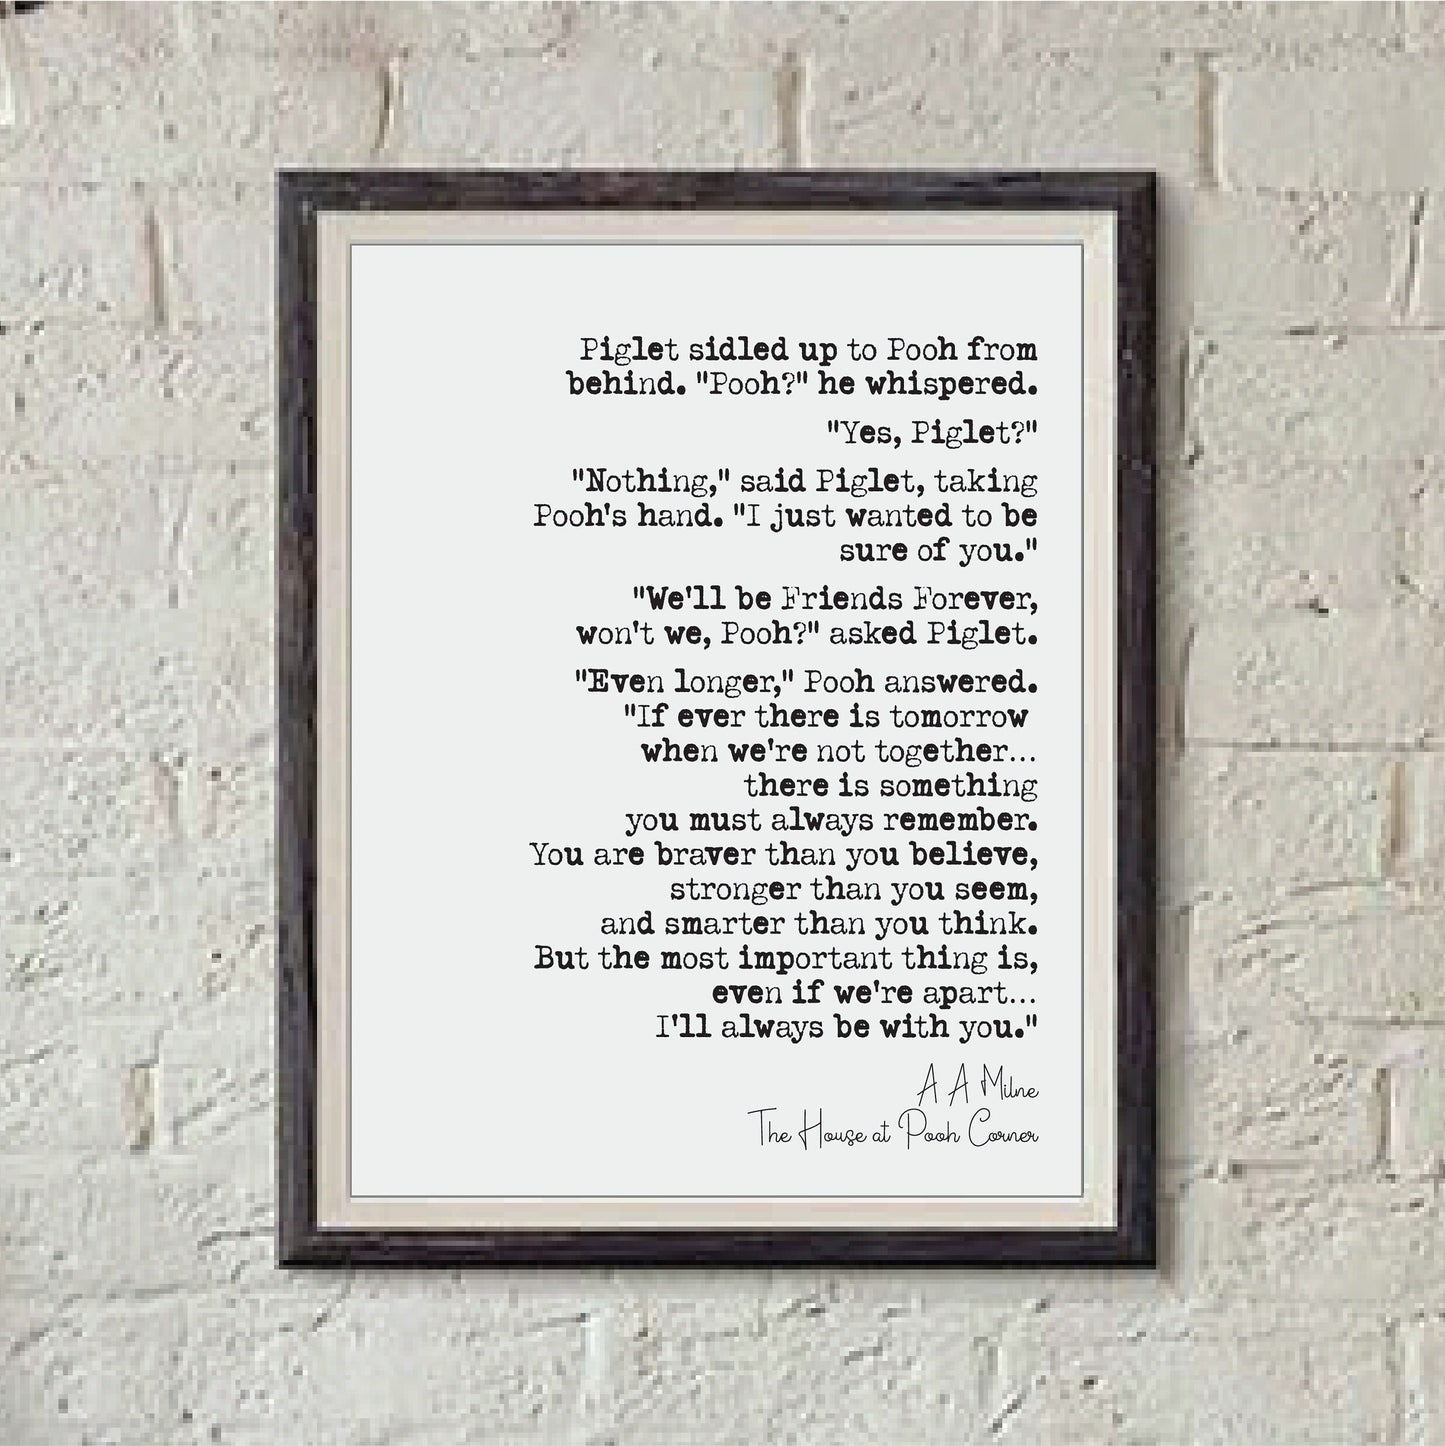 Piglet sidled up to Pooh from
behind. "Pooh?" he whispered.
"Yes, Piglet?"
"Nothing," said Piglet, taking
Pooh's hand. "I just wanted to be
sure of you."
"We'll be Friends Forever,
won't we, Pooh?" asked Piglet.
"Even longer," Pooh answered.
"If ever there is tomorrow
when we're not together...
there is something
you must always remember.
You are braver than you believe,
stronger than you seem,
and smarter than you think.
But the most important thing is,
even if we're apart...
I'll always be with you."
A A Milne
The House at Pooh Corner